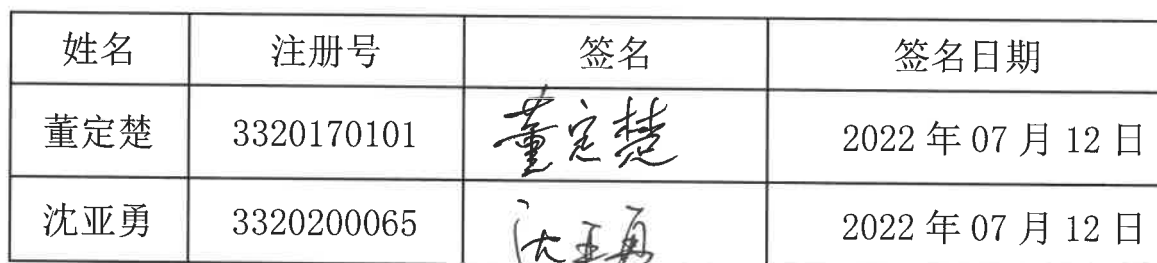 姓名 注册号 签名 签名日期
董定楚 3320170101 董定楚 2022年07月12日
沈亚勇 3320200065 沈亚勇 2022年07月12日